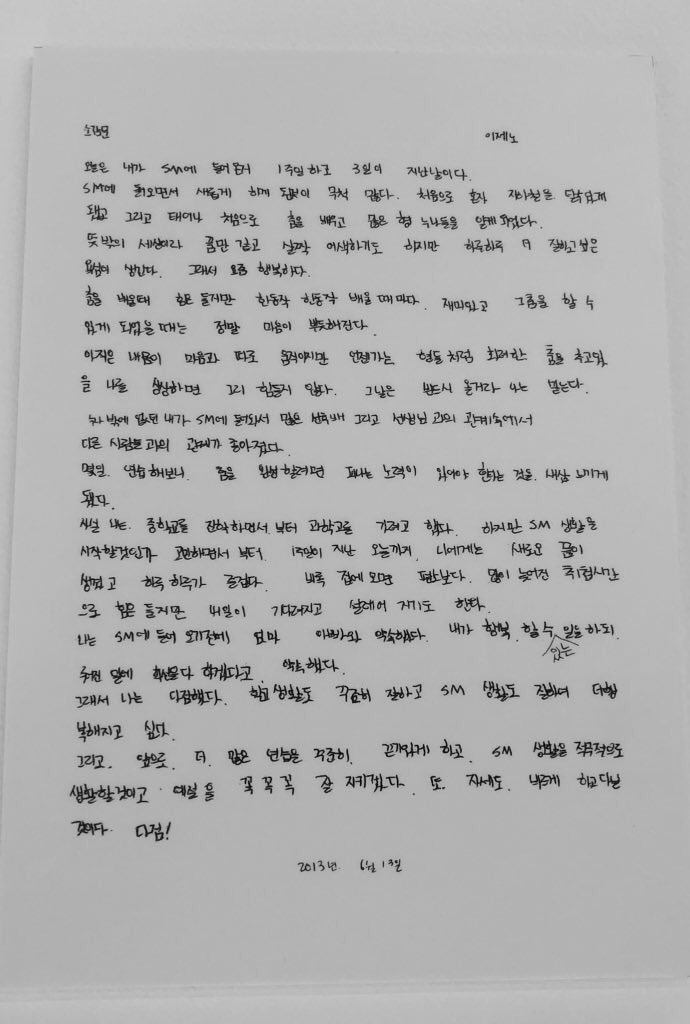 소감문 이제노
오늘은 내가 SM에 들어온지 1주일하고 3일이 지난날이다.
SM에 들어오면서 새롭게 하게 된것이 무척 많다. 처음으로 혼자 지하철을 타게
됐고 그리고 태어나 처음으로 춤을 배우고 많은 형 누나들을 알게 되었다.
뜻밖의 세상이라 꿈만 같고 살짝 어색하기도 하지만 하루하루 더 잘하고 싶은
욕심이 생긴다. 그래서 요즘 행복하다.
춤을 배울때 힘은 들지만 한동작 한동작 배울때마다. 재미있고 그룹을 할 수
있게 되었을때는 정말 마음이 뿌듯해진다.
아직은 내몸이 마음과 따로 움직이지만 언젠가는 형들처럼 화려한 춤을 추고있
을 나를 상상하면 그리 힘들지 않다. 그날은 반드시 올거라 나는 믿는다.
누나 밖에 없던 내가 SM에 들어와서 많은 선후배 그리고 선생님과의 관계속에서
다른 사람들과의 관계가 좋아졌다.
몇일 연습해보니 춤을 완성할려면 피나는 노력이 있어야 한다는 것을 새삼 느끼게
됐다.
사실 나는 중학교를 진학하면서부터 과학고를 가려고 했다. 하지만 SM 생활을
시작할것인가 고민하면서부터 1주일이 지난 오늘까지 나에게는 새로운 꿈이
생겼고 하루 하루가 즐겁다. 비록 집에 오면 피곤보다. 많이 늦어진 취침시간
으로 힘은 들지만 내일이 기다려지고 설레어 지기도 한다.
나는 SM에 들어 오기전에 엄마 아빠와 약속했다. 내가 행복 할 수 있는 일을 하되
주어진 일에 최선을다 하겠다고 약속했다.
그래서 나는 다짐했다. 학교생활도 꾸준히 잘하고 SM 생활도 잘하여 더행
복해지고 싶다.
그리고. 앞으로 더 많은 연습을 꾸준히 끈기있게 하고 SM 생활을 적극적으로
생활할것이고 예절을 꼭 꼭 꼭 잘 지키겠다. 또 자세도 바르게 하고다닐
것이다. 다짐!
2013년 6월 13일